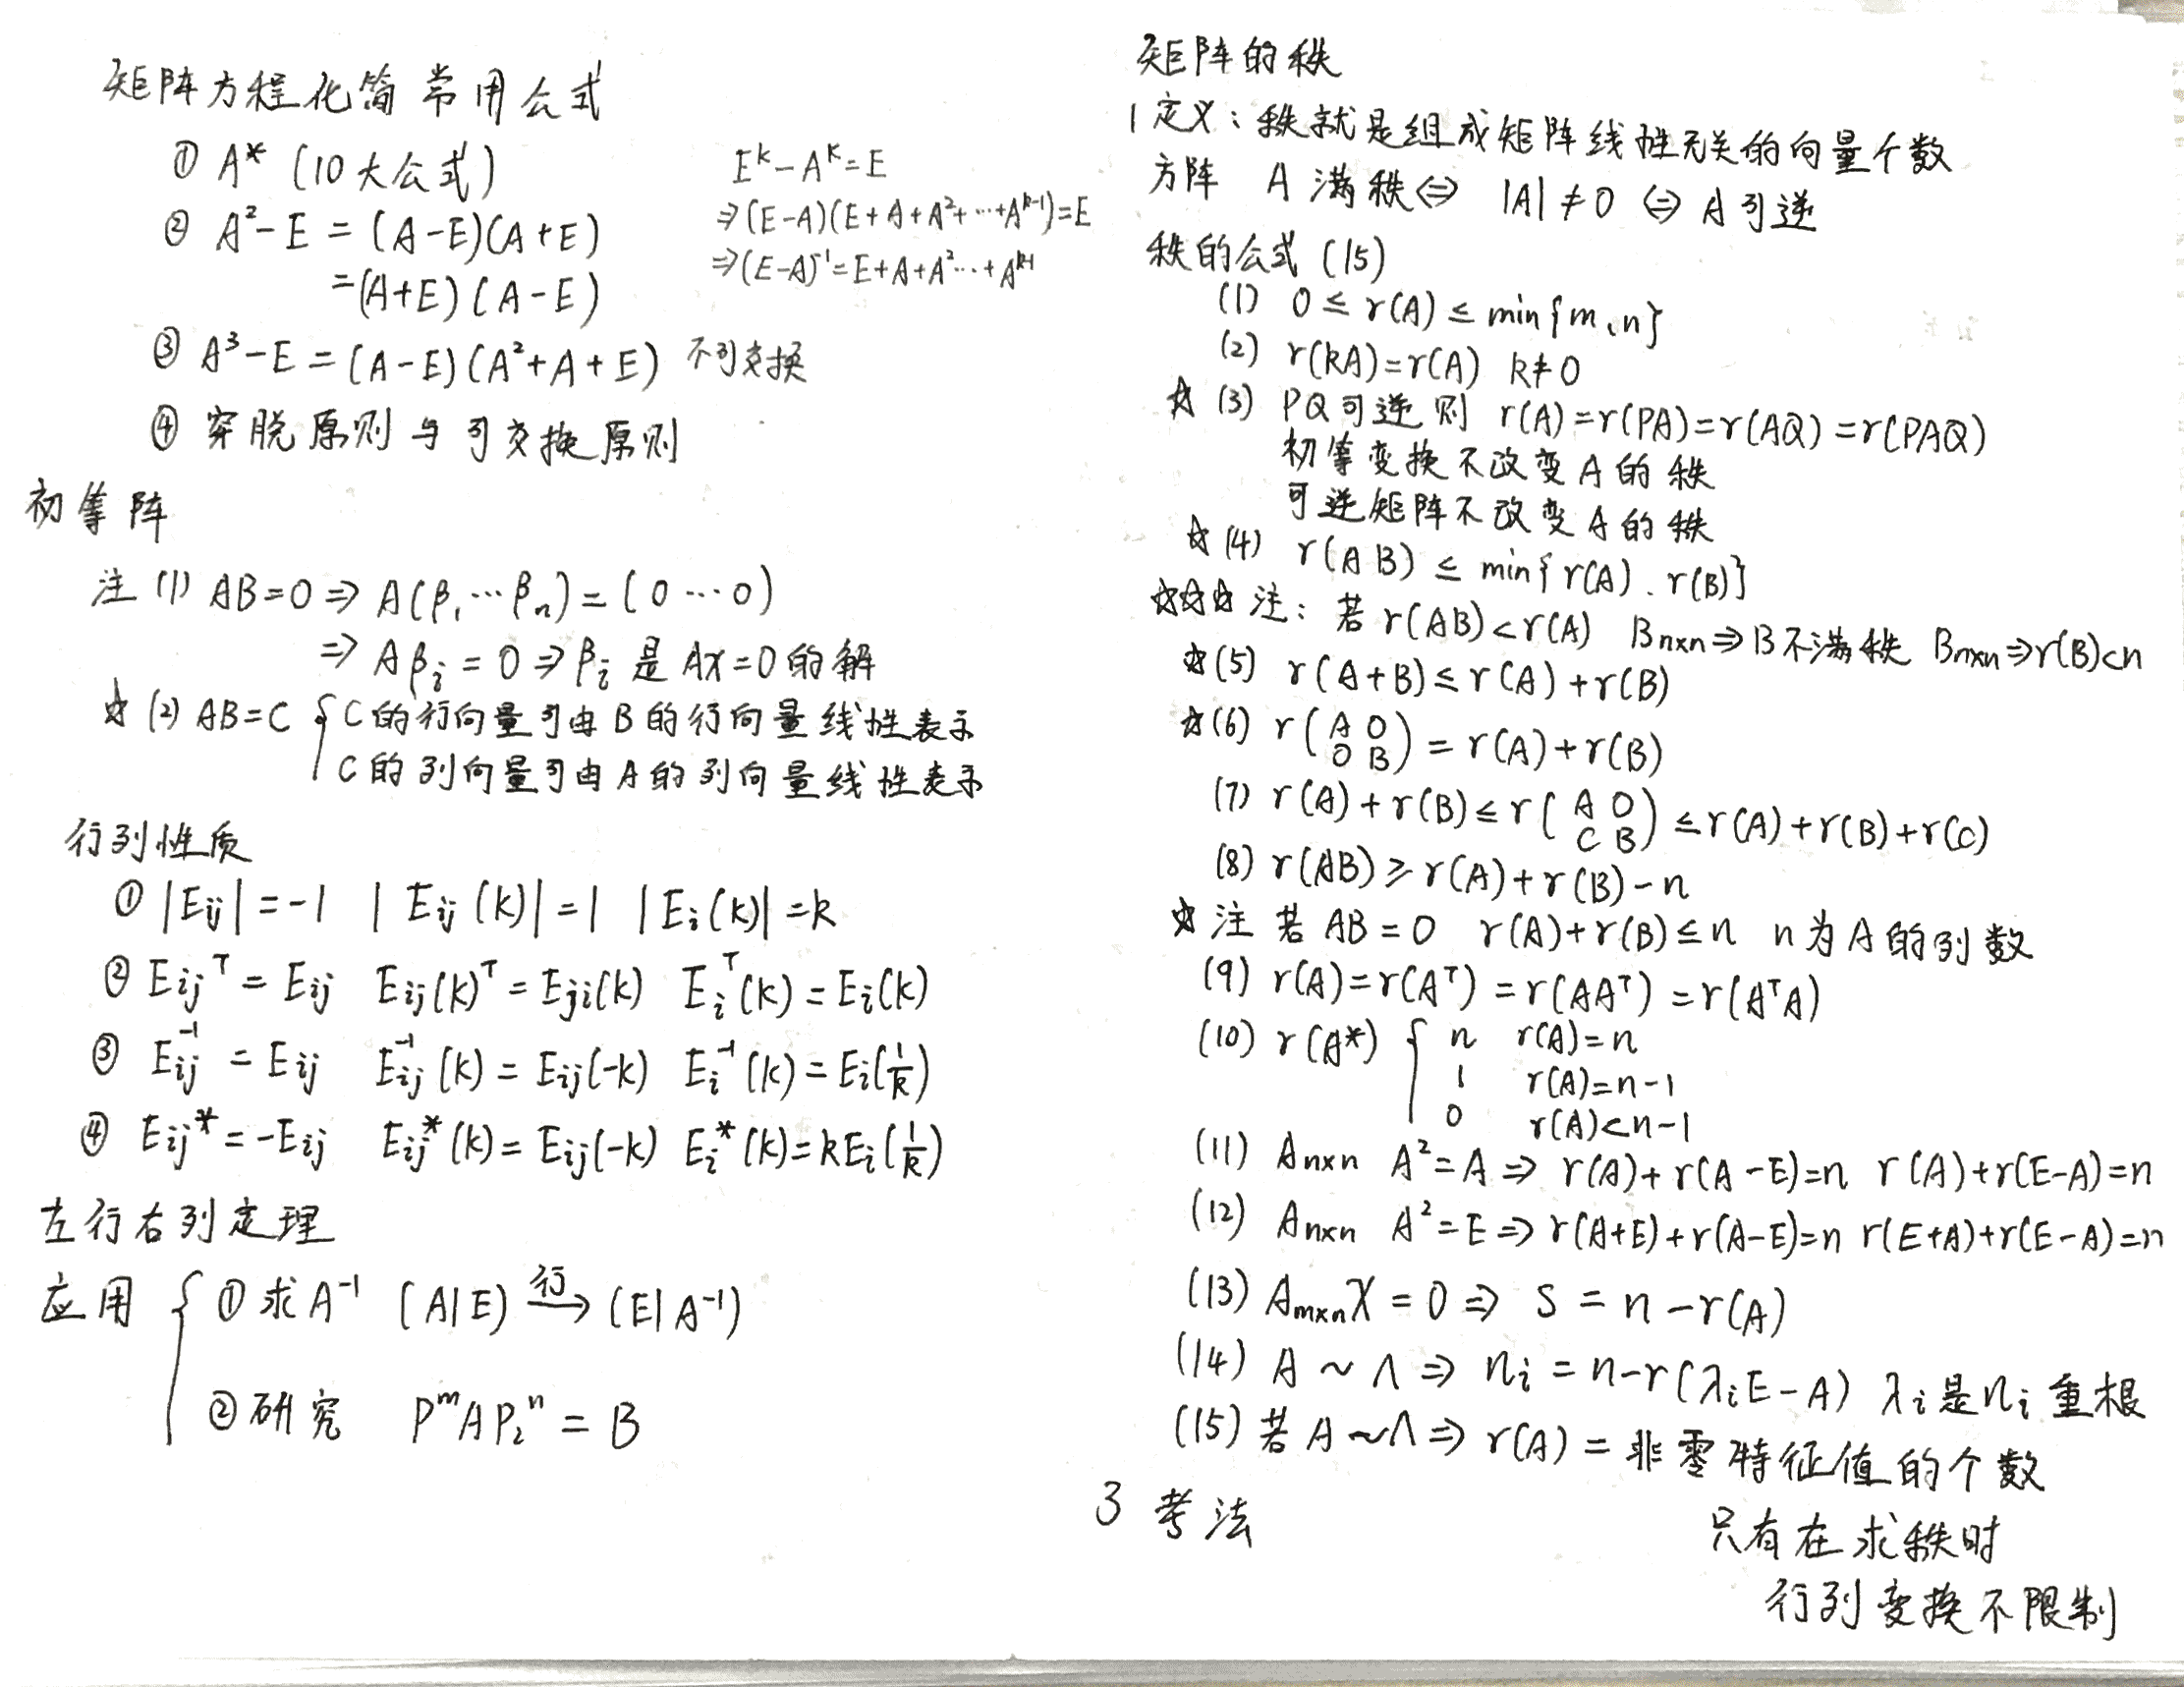 矩阵方程化简常用公式
① A* (10大公式)
② A²-E = (A-E)(A+E)
=(A+E)(A-E)
③ A³-E = (A-E)(A²+A+E) 不可交换
④ 穿脱原则与可交换原则
E^k-A^k=E
⇒(E-A)(E+A+A²+…+A^(k-1))=E
⇒(E-A)^-1=E+A+A²…+A^(k-1)
初等阵
注 (1) AB=0 ⇒ A(β₁…βn)=(0…0)
⇒ Aβi=0 ⇒ βi 是 Ax=0 的解
☆ (2) AB=C { C的行向量可由B的行向量线性表示
C的列向量可由A的列向量线性表示
行列性质
① |Eij|=-1 |Eij(k)|=1 |Ei(k)|=k
② Eij^T=Eij Eij(k)^T=Eji(k) Ei^T(k)=Ei(k)
③ Eij^-1=Eij Eij^-1(k)=Eij(-k) Ei^-1(k)=Ei(1/k)
④ Eij*=-Eij Eij*(k)=Eij(-k) Ei*(k)=kEi(1/k)
左行右列定理
应用 { ① 求A^-1 (A|E) 行→ (E|A^-1)
② 研究 P^mAP₂^n=B
矩阵的秩
1 定义：秩就是组成矩阵线性无关的向量个数
方阵 A 满秩 ⇔ |A|≠0 ⇔ A可逆
秩的公式 (15)
(1) 0≤r(A)≤min{m、n}
(2) r(kA)=r(A) k≠0
☆ (3) PQ可逆则 r(A)=r(PA)=r(AQ)=r(PAQ)
初等变换不改变A的秩
可逆矩阵不改变A的秩
☆ (4) r(AB)≤min{r(A).r(B)}
☆☆☆ 注：若 r(AB)<r(A) Bn×n⇒B不满秩 Bn×n⇒r(B)<n
☆ (5) r(A+B)≤r(A)+r(B)
☆ (6) r(A 0
0 B)=r(A)+r(B)
(7) r(A)+r(B)≤r(A 0
C B)≤r(A)+r(B)+r(C)
(8) r(AB)≥r(A)+r(B)-n
☆ 注 若 AB=0 r(A)+r(B)≤n n为A的列数
(9) r(A)=r(A^T)=r(AA^T)=r(A^TA)
(10) r(A*) { n r(A)=n
1 r(A)=n-1
0 r(A)<n-1
(11) An×n A²=A ⇒ r(A)+r(A-E)=n r(A)+r(E-A)=n
(12) An×n A²=E ⇒ r(A+E)+r(A-E)=n r(E+A)+r(E-A)=n
(13) Am×nX=0 ⇒ S=n-r(A)
(14) A~Λ ⇒ ni=n-r(λiE-A) λi是ni重根
(15) 若A~Λ ⇒ r(A)=非零特征值的个数
3 考法
只有在求秩时
行列变换不限制